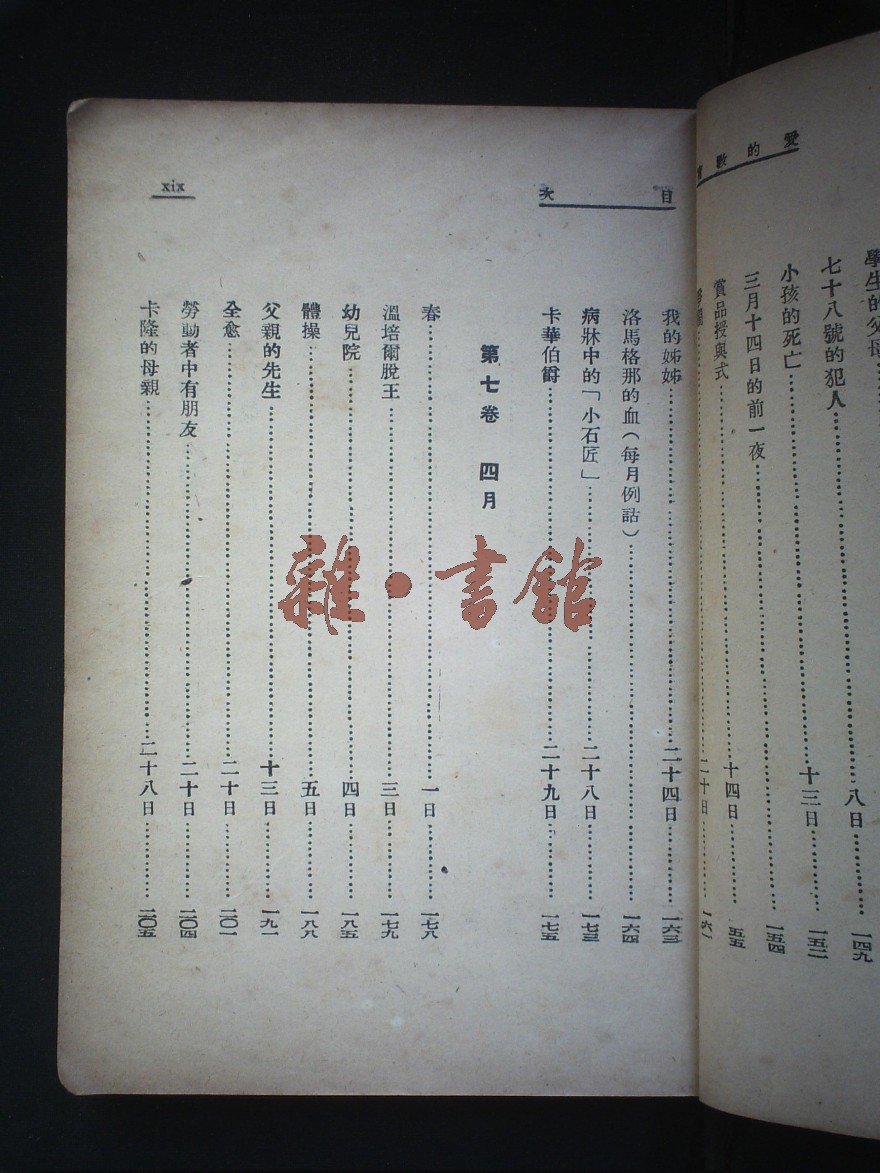 愛的教育
學生的父母
八日…………一四九
七十八號的犯人
小孩的死亡…………十三日…………一五二
三月十四日的前一夜…………一五四
賞品授與式…………十四日…………一五五
二十日…………一六一
目次
xix
我的姊姊…………二十四日…………一六三
洛馬格那的血(每月例話)…………一六四
病牀中的「小石匠」…………二十八日…………一七三
卡華伯爵…………二十九日…………一七五
第七卷 四月
春…………一日…………一七八
溫培爾脫王…………三日…………一七九
幼兒院…………四日…………一八五
體操…………五日…………一八八
父親的先生…………十三日…………一九一
全愈…………二十日…………二〇一
勞動者中有朋友…………二十日…………二〇四
卡隆的母親…………二十八日…………二〇五
雜·書館